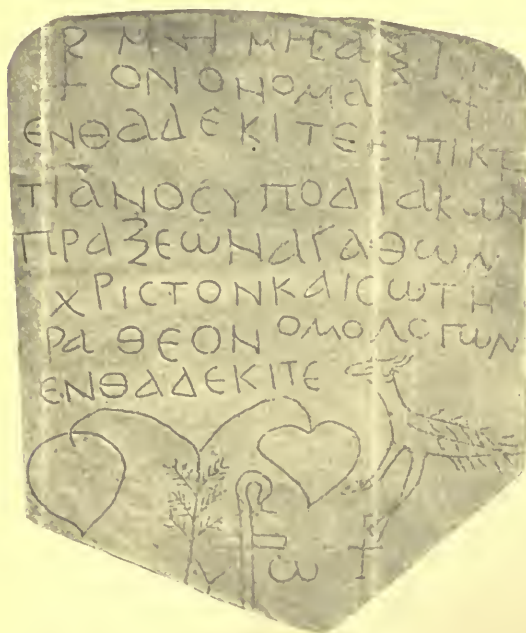 ☧ ΜΝΗΜΗϹΑΞΙ
ΟΝΟΝΟΜΑ
ΕΝΘΑΔΕΚΙΤΕΕΠΙΚΤ
ΤΙΑΝΟϹΥΠΟΔΙΑΚΩΝ
ΠΡΑΞΕΩΝΑΓΑΘΩΝ
ΧΡΙϹΤΟΝΚΑΙϹΩΤΗ
ΡΑΘΕΟΝΟΜΟΛΟΓΩΝ
ΕΝΘΑΔΕΚΙΤΕ
Ω